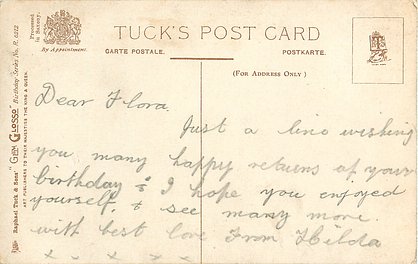 TUCK'S POST CARD
CARTE POSTALE.
POSTKARTE.
(FOR ADDRESS ONLY)
By Appointment.
Processed in Saxony.
Raphael Tuck & Sons' "GEM GLOSSO" Birthday Series No. P. 6222
ART PUBLISHERS TO THEIR MAJESTIES THE KING & QUEEN.
Dear Flora.
Just a line wishing
you many happy returns of your
birthday & I hope you enjoyed
yourself. & see many more.
with best love From Hilda
x x x x x